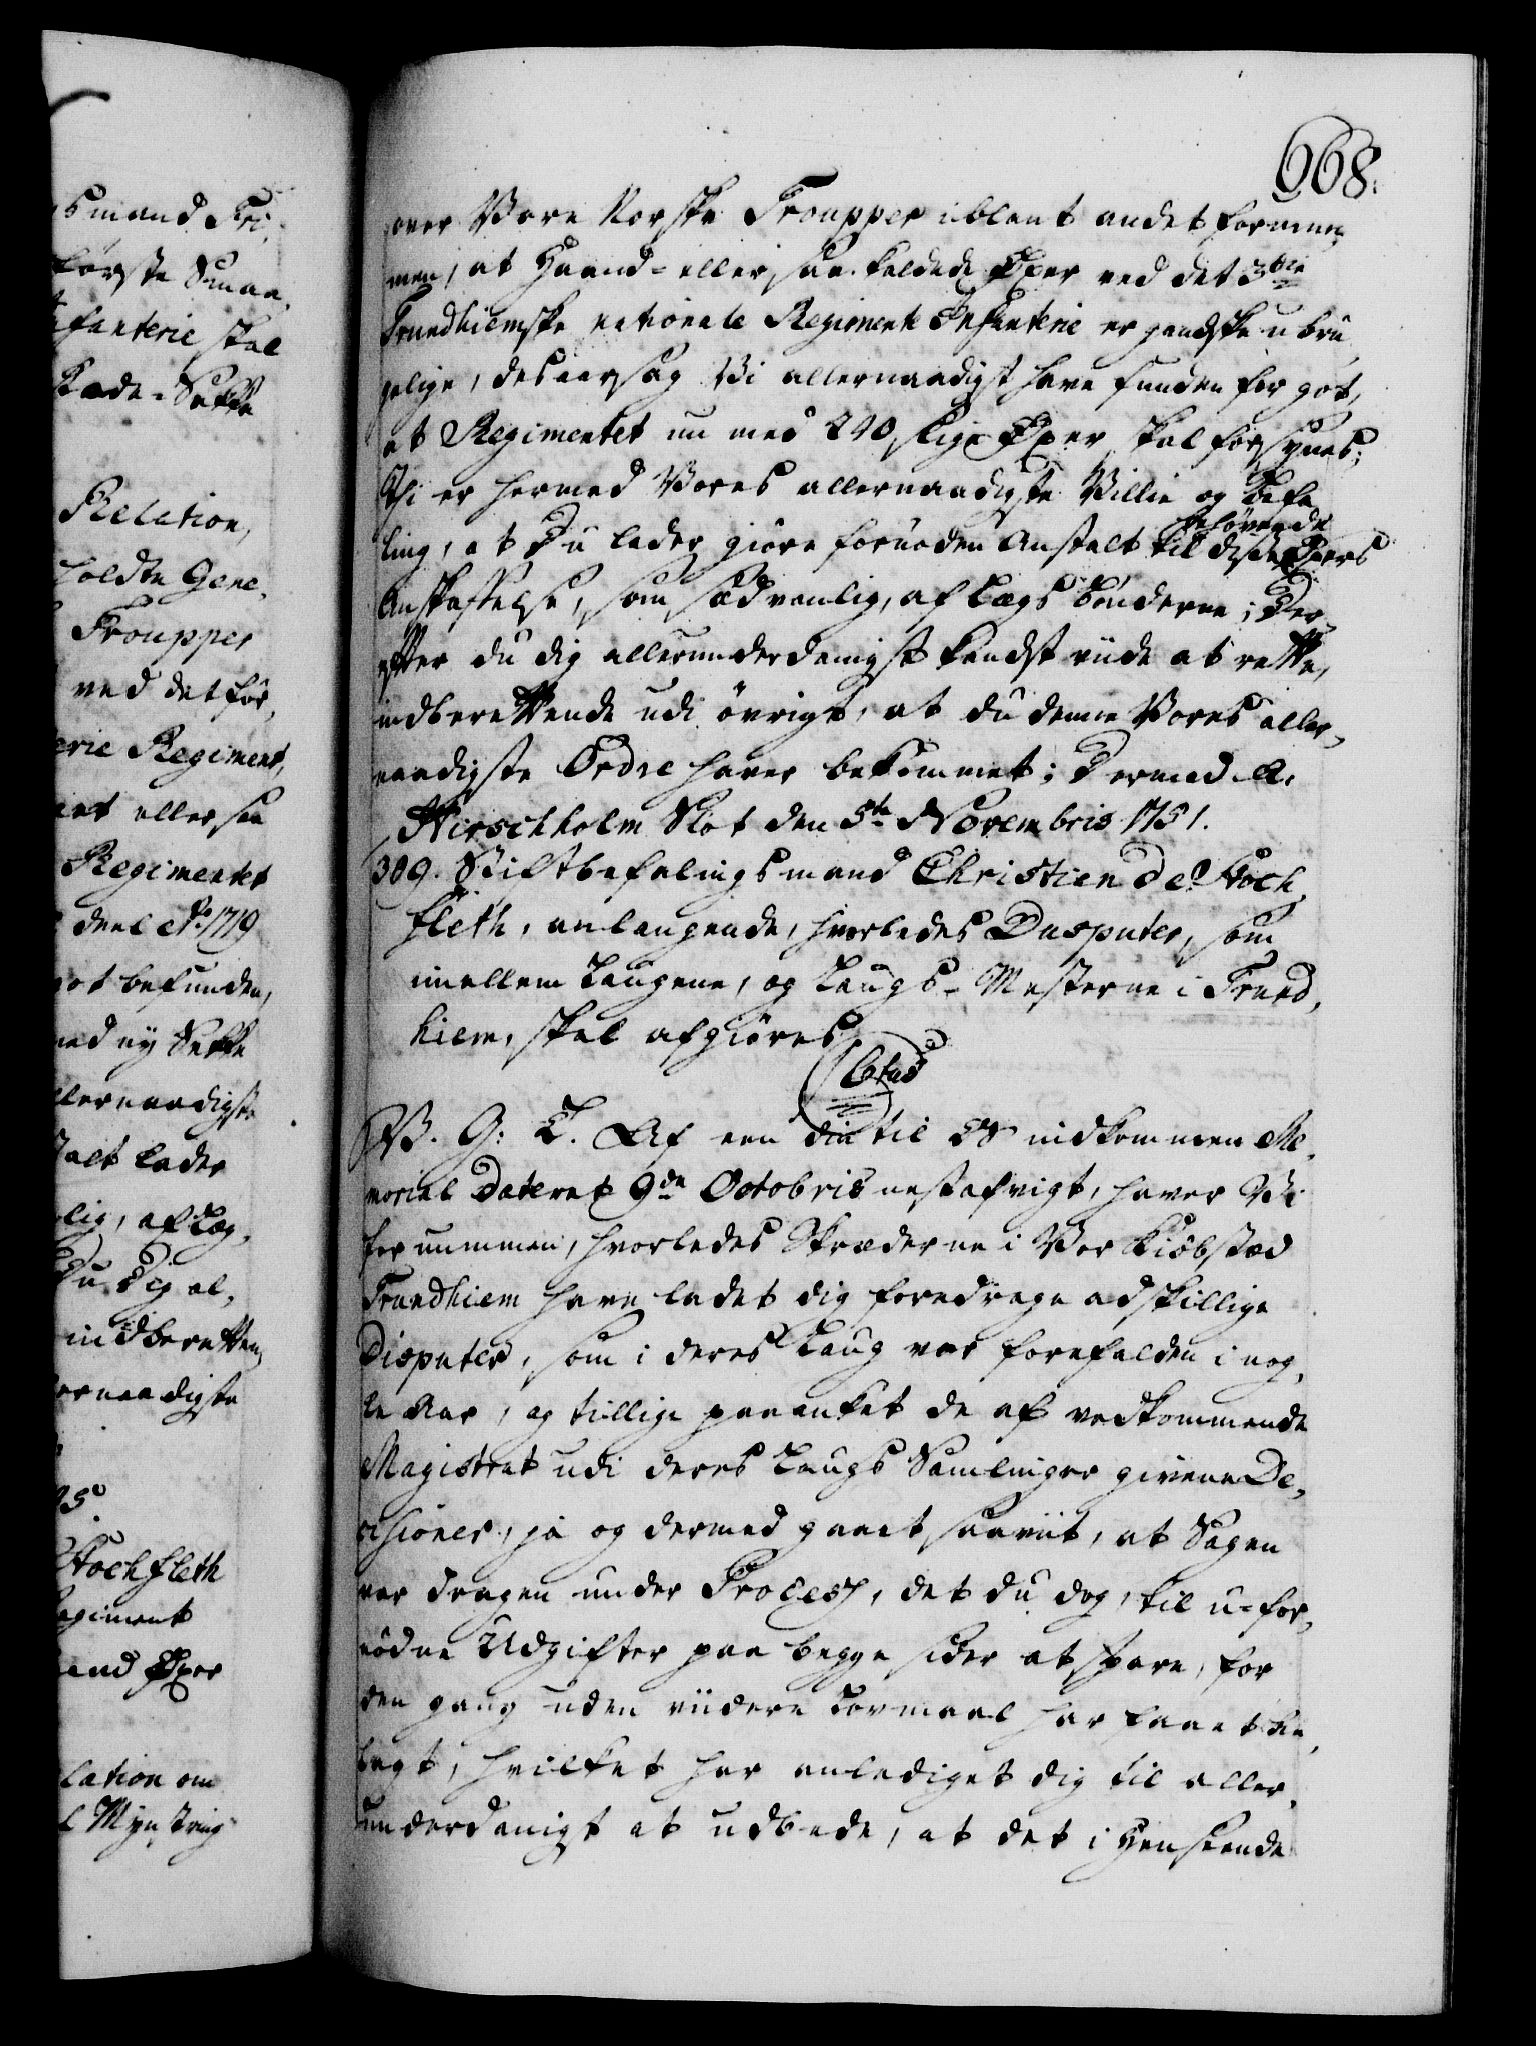 668.
over Vore Norske Troupper iblant andet fornum¬
men, at Haand- eller saa kaldede Øxer ved det 3die
Trundhiemske nationale Regimente Infanterie er gandske ubru¬
gelige, desaarsag Vi allernaadigst have funden for got,
at Regimentet nu med 240 slige Øxer skal forsynes;
Thi er hermed Vores allernaadigste Villie og Befa¬
ling, at Du lader giøre fornøden Anstalt til disse behøvende Øxers
Anskaffelse, som sædvanlig, af Lægs Bønderne; Der¬
efter du dig allerunderdanigst kandst viide at rette,
indberettende udi øvrigt, at du denne Vores aller¬
naadigste Ordre haver bekommet; Dermed &c.
Hirschholm Slot den 5te Novembris 1751.
309. Stiftbefalingsmand Christian de Stoch¬
fleth, anlangende, hvorledes Dusputer, som
imellem Laugene, og Laugs-Mesterne i Trund¬
hiem, skal afgiøres.
V. G: T. Af een din til Os indkommen Me¬
morial Dateret 9de Octobris nestafvigt, haver Vi
fornummen, hvorledes Skræderne i Vor Kiøbstad
Trundhiem have ladet dig foredrage adskillige
Disputer, som i deres Laug var forefalden i nog¬
le Aar, og tillige paaanket de af vedkommende
Magistrat udi deres Laugs Samlinger givene De¬
cisioner, ja og dermed gaaet saaviit, at Sagen
var dragen under Process, det du dog, til u-for¬
nødne Udgifter paa begge sider at spare, for
den gang uden viidere Lovmaal har faaet bi¬
lagt, hvilket har anlediget dig til aller¬
underdanigst at udbede, at det i Henseende
smand Fri¬
første Smaa¬
Infanterie skal
Relation,
holdte Gene¬
Troupper
ved det for¬
erie Regiment,
eller saa
Regimentet
deel Ao 1719
got befunden,
med ny
llernaadigste
stalt lader
lig, af Læg¬
du dig al¬
indberetten¬
ernaadigste
Stochfleth
Regiment
aand Øxer
lation om
l Mynstring